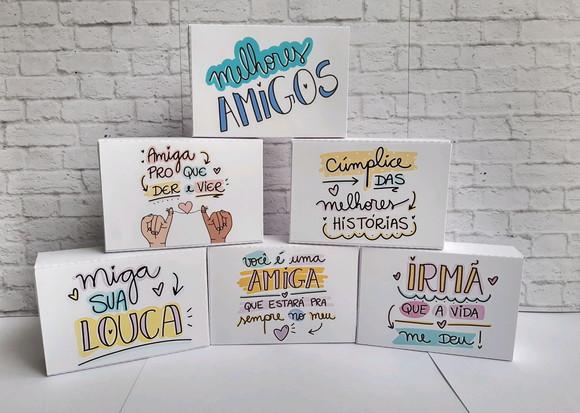 melhores
AMIGOS
Amiga
PRO QUE
DER e VIER
CÚMPLICE
DAS
melhores
HISTÓRIAS
miga
SUA
LOUCA
você é uma
AMIGA
QUE ESTARÁ PRA
sempre no meu
IRMÃ
QUE A VIDA
me Deu!